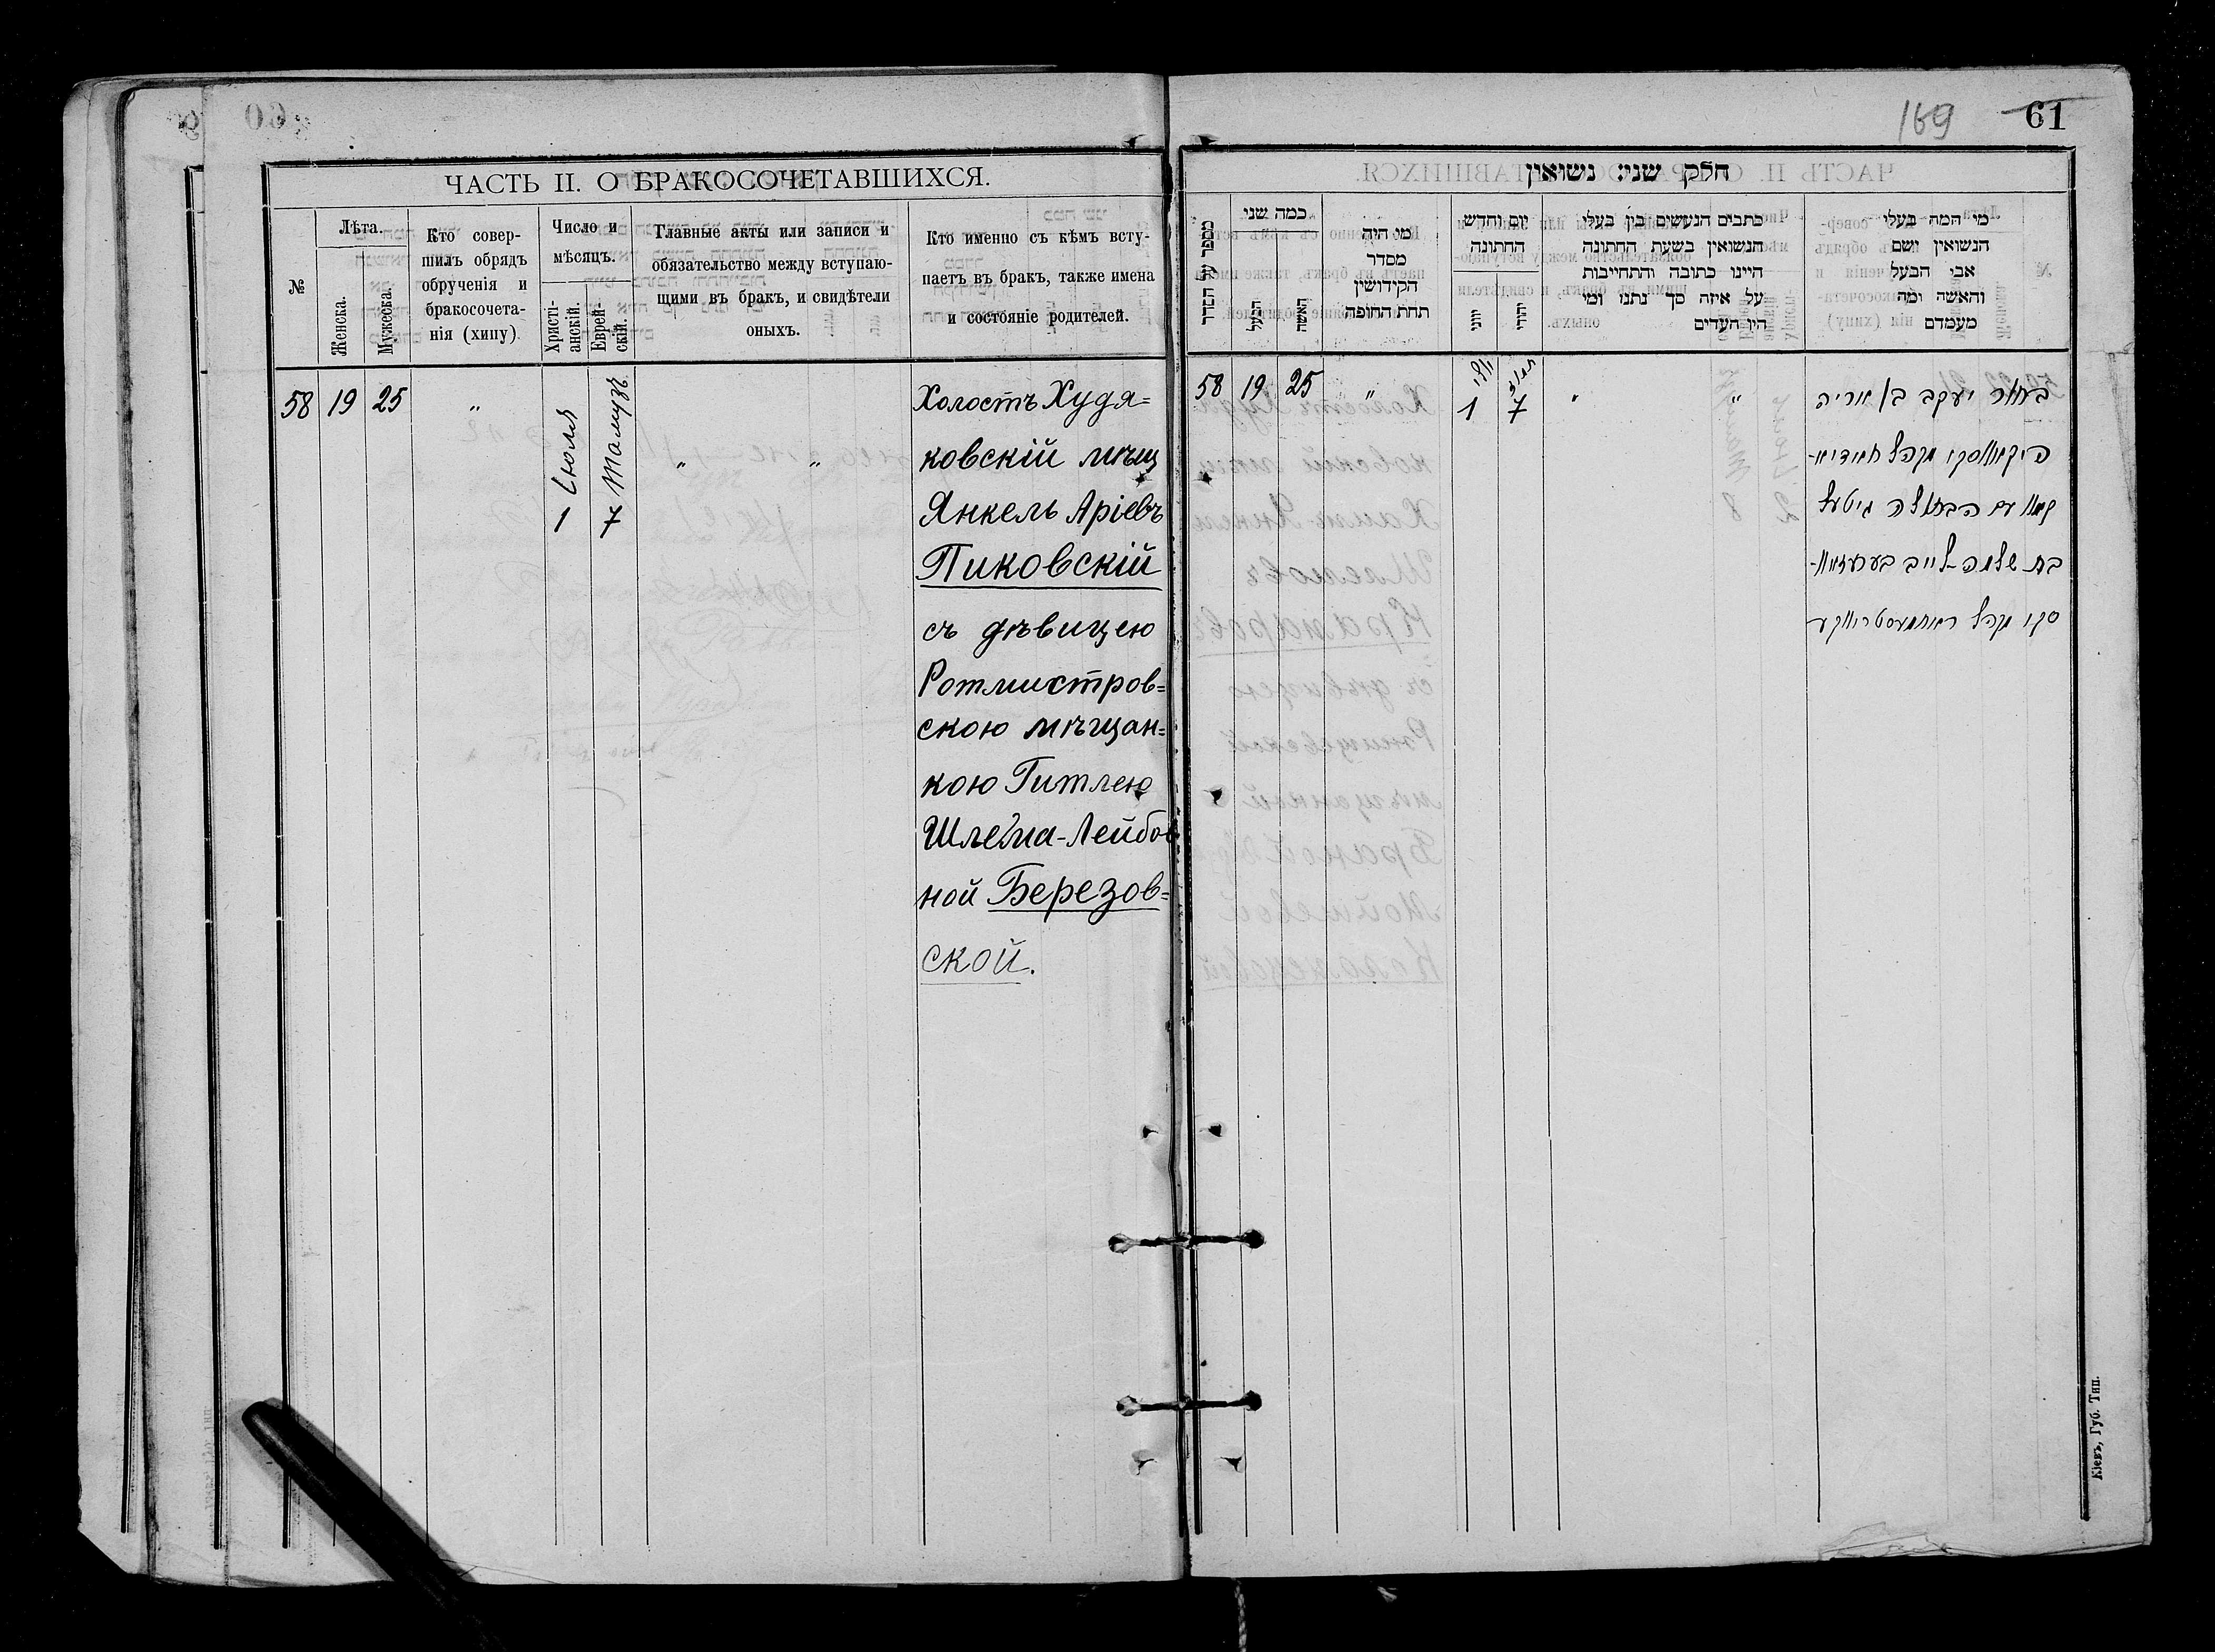 60
169 61
ЧАСТЬ II. О БРАКОСОЧЕТАВШИХСЯ.
№
Лѣта.
Женска.
Мужеска.
Кто совер-
шилъ обрядъ
обрученія и
бракосочета-
нія (хипу)
Число и
мѣсяцъ.
Христі-
анскій.
Еврей-
скій.
Главные акты или записи и
обязательство между вступаю-
щими въ бракъ, и свидѣтели
оныхъ.
Кто именно съ кѣмъ всту-
паетъ въ бракъ, также имена
и состояніе родителей.
58 19 25 "
1 Іюля
7 Тамузъ
" "
Холостъ Худя=
ковскій мѣщ
Янкель Аріевъ
Пиковскій
съ дѣвицею
Ротмистров=
скою мѣщан=
кою Гитлею
Шлема-Лейбов
ной Березов=
ской.
חלק שני: נשואין
מספר על הסדר
כמה שני
הבעל
האשה
מי היה
מסדר
הקידושין
תחת החופה
יום וחדש
החתונה
יוני
יהודי
כתבים הנעשים בין בעלי
הנשואין בשעת החתונה
היינו כתובה והתחייבות
על איזה סך נתנו ומי
היו העדים
מי המה בעלי
הנשואין ושם
אבי הבעל
והאשה ומה
מעמדם
58 19 25 "
יולי
1
תמוז
7
" "
בחור יעקב בן אריה
פיקאווסקי מקהל חודיא-
קאוו עם הבתולה גיטעל
בת שלמה-לייב בערעזאוו-
סקי מקהל ראטמיסטריווקע
Кіевъ, Губ. Тип.